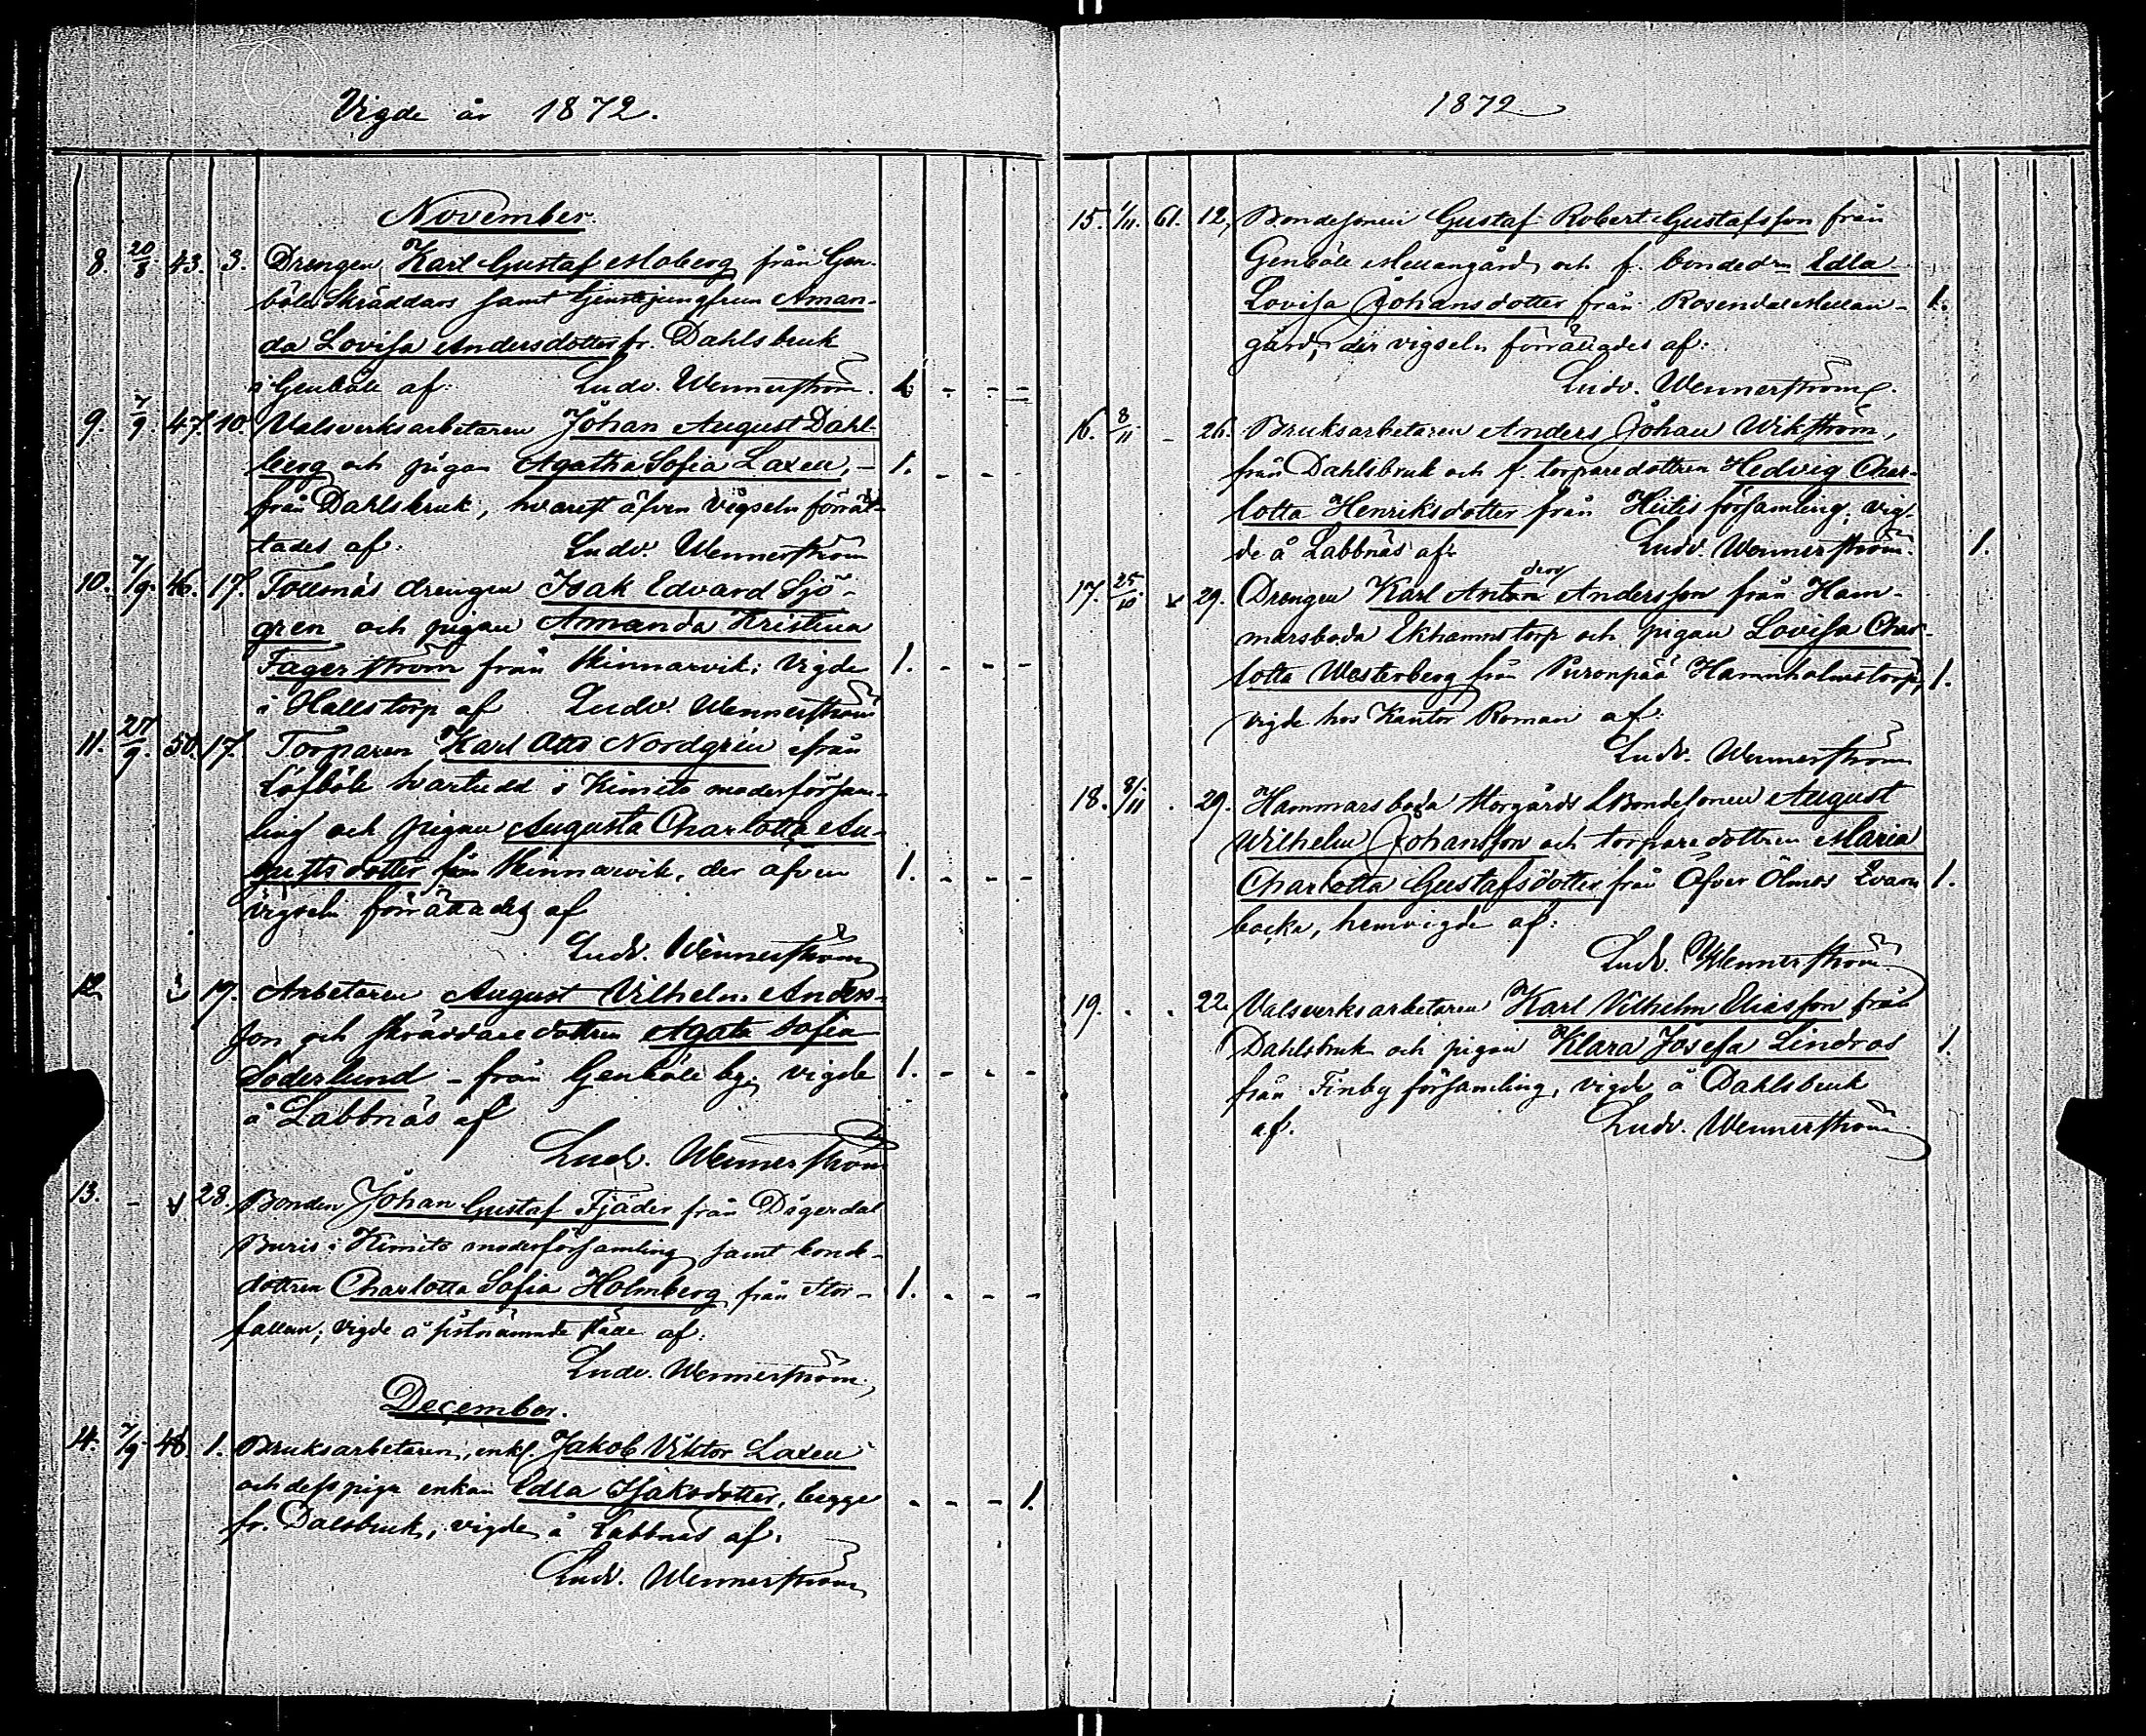 Vigde år 1872.
November.
8. 20/8 43. 3. Drengen Karl Gustaf Moberg från Gen-
böle Skräddars samt tjenstejungfrun Aman-
da Lovisa Andersdotter fr. Dahlsbruk
i Genböle af: Ludv. Wennerström. 1. - - -
9. 7/9 47. 10. Valsverksarbetaren Johan August Dahl-
berg och pigan Agatha Sofia Laxen, - 1. - -
från Dahlsbruk, hvarest äfven vigseln förrät-
tades af: Ludv. Wennerström
10. 7/9. 46. 17. Tollsnäs drengen Isak Edvard Sjö-
gren och pigan Amanda Kristina
Fagerström från Skinnarvik; vigde 1. - - -
i Hallstorp af Ludv. Wennerström
11. 27/9. 50. 17. Torparen Karl Otto Nordgrén från
Löfböle Svartudd i Kimito moderförsam-
ling och pigan Augusta Charlotta Au-
gustsdotter från Skinnarvik, der äfven 1. - - -
vigseln förrättades af
Ludv. Wennerström
12. 17. Arbetaren August Vilhelm Anders-
son och skräddaredottren Agata Sofia
Söderlund - från Genböle by; vigde 1. - - -
å Labbnäs af
Ludv. Wennerström
13. - 28. Bonden Johan Gustaf Fjäder från Dägerdal
Buris i Kimito moderförsamling samt bonde-
dottren Charlotta Sofia Holmberg från Stor- 1. - - -
fallan; vigde å sistnämnde ställe af:
Ludv. Wennerström
December.
14. 7/9 48. 1. Bruksarbetaren, enkl. Jakob Viktor Laxen
och dess piga enkan Edla Isaksdotter, begge - - - 1.
fr. Dalsbruk; vigde å Labbnäs af:
Ludv. Wennerström
1872
15. 1/11. 61. 12. Bondesonen Gustaf Robert Gustafsson från
Genböle Mellangård och f. bonded:n Edla
Lovisa Johansdotter från Rosendal Mellan- 1.
gård, der vigseln förrättades af:
Ludv. Wennerström.
16. 8/11 - 26. Bruksarbetaren Anders Johan Wikström,
från Dahlsbruk och f. torparedottren Hedvig Char-
lotta Henriksdotter från Hitis församling; vig-
de å Labbnäs af: Ludv. Wennerström. 1.
17. 25/10. 29. Drengen Karl Anton Andersson från Ham-
marsboda Ekhamnstorp och pigan Lovisa Char-
lotta Westerberg från Puronpää Hamnholmstorp, 1.
vigde hos Kantor Roman af:
Ludv. Wennerström
18. 8/11 . 29. Hammarsboda Storgårds Bondesonen August
Wilhelm Johansson och torparedottren Maria
Charlotta Gustafsdotter från Öfver Ölmos Svarv 1.
backa, hemvigde af:
Ludv. Wennerström.
19. . . 22. Valsverksarbetaren Karl Vilhelm Eliasson från
Dahlsbruk och pigan Klara Josefa Lindros 1.
från Finby församling, vigde å Dahlsbruk
af. Ludv. Wennerström.